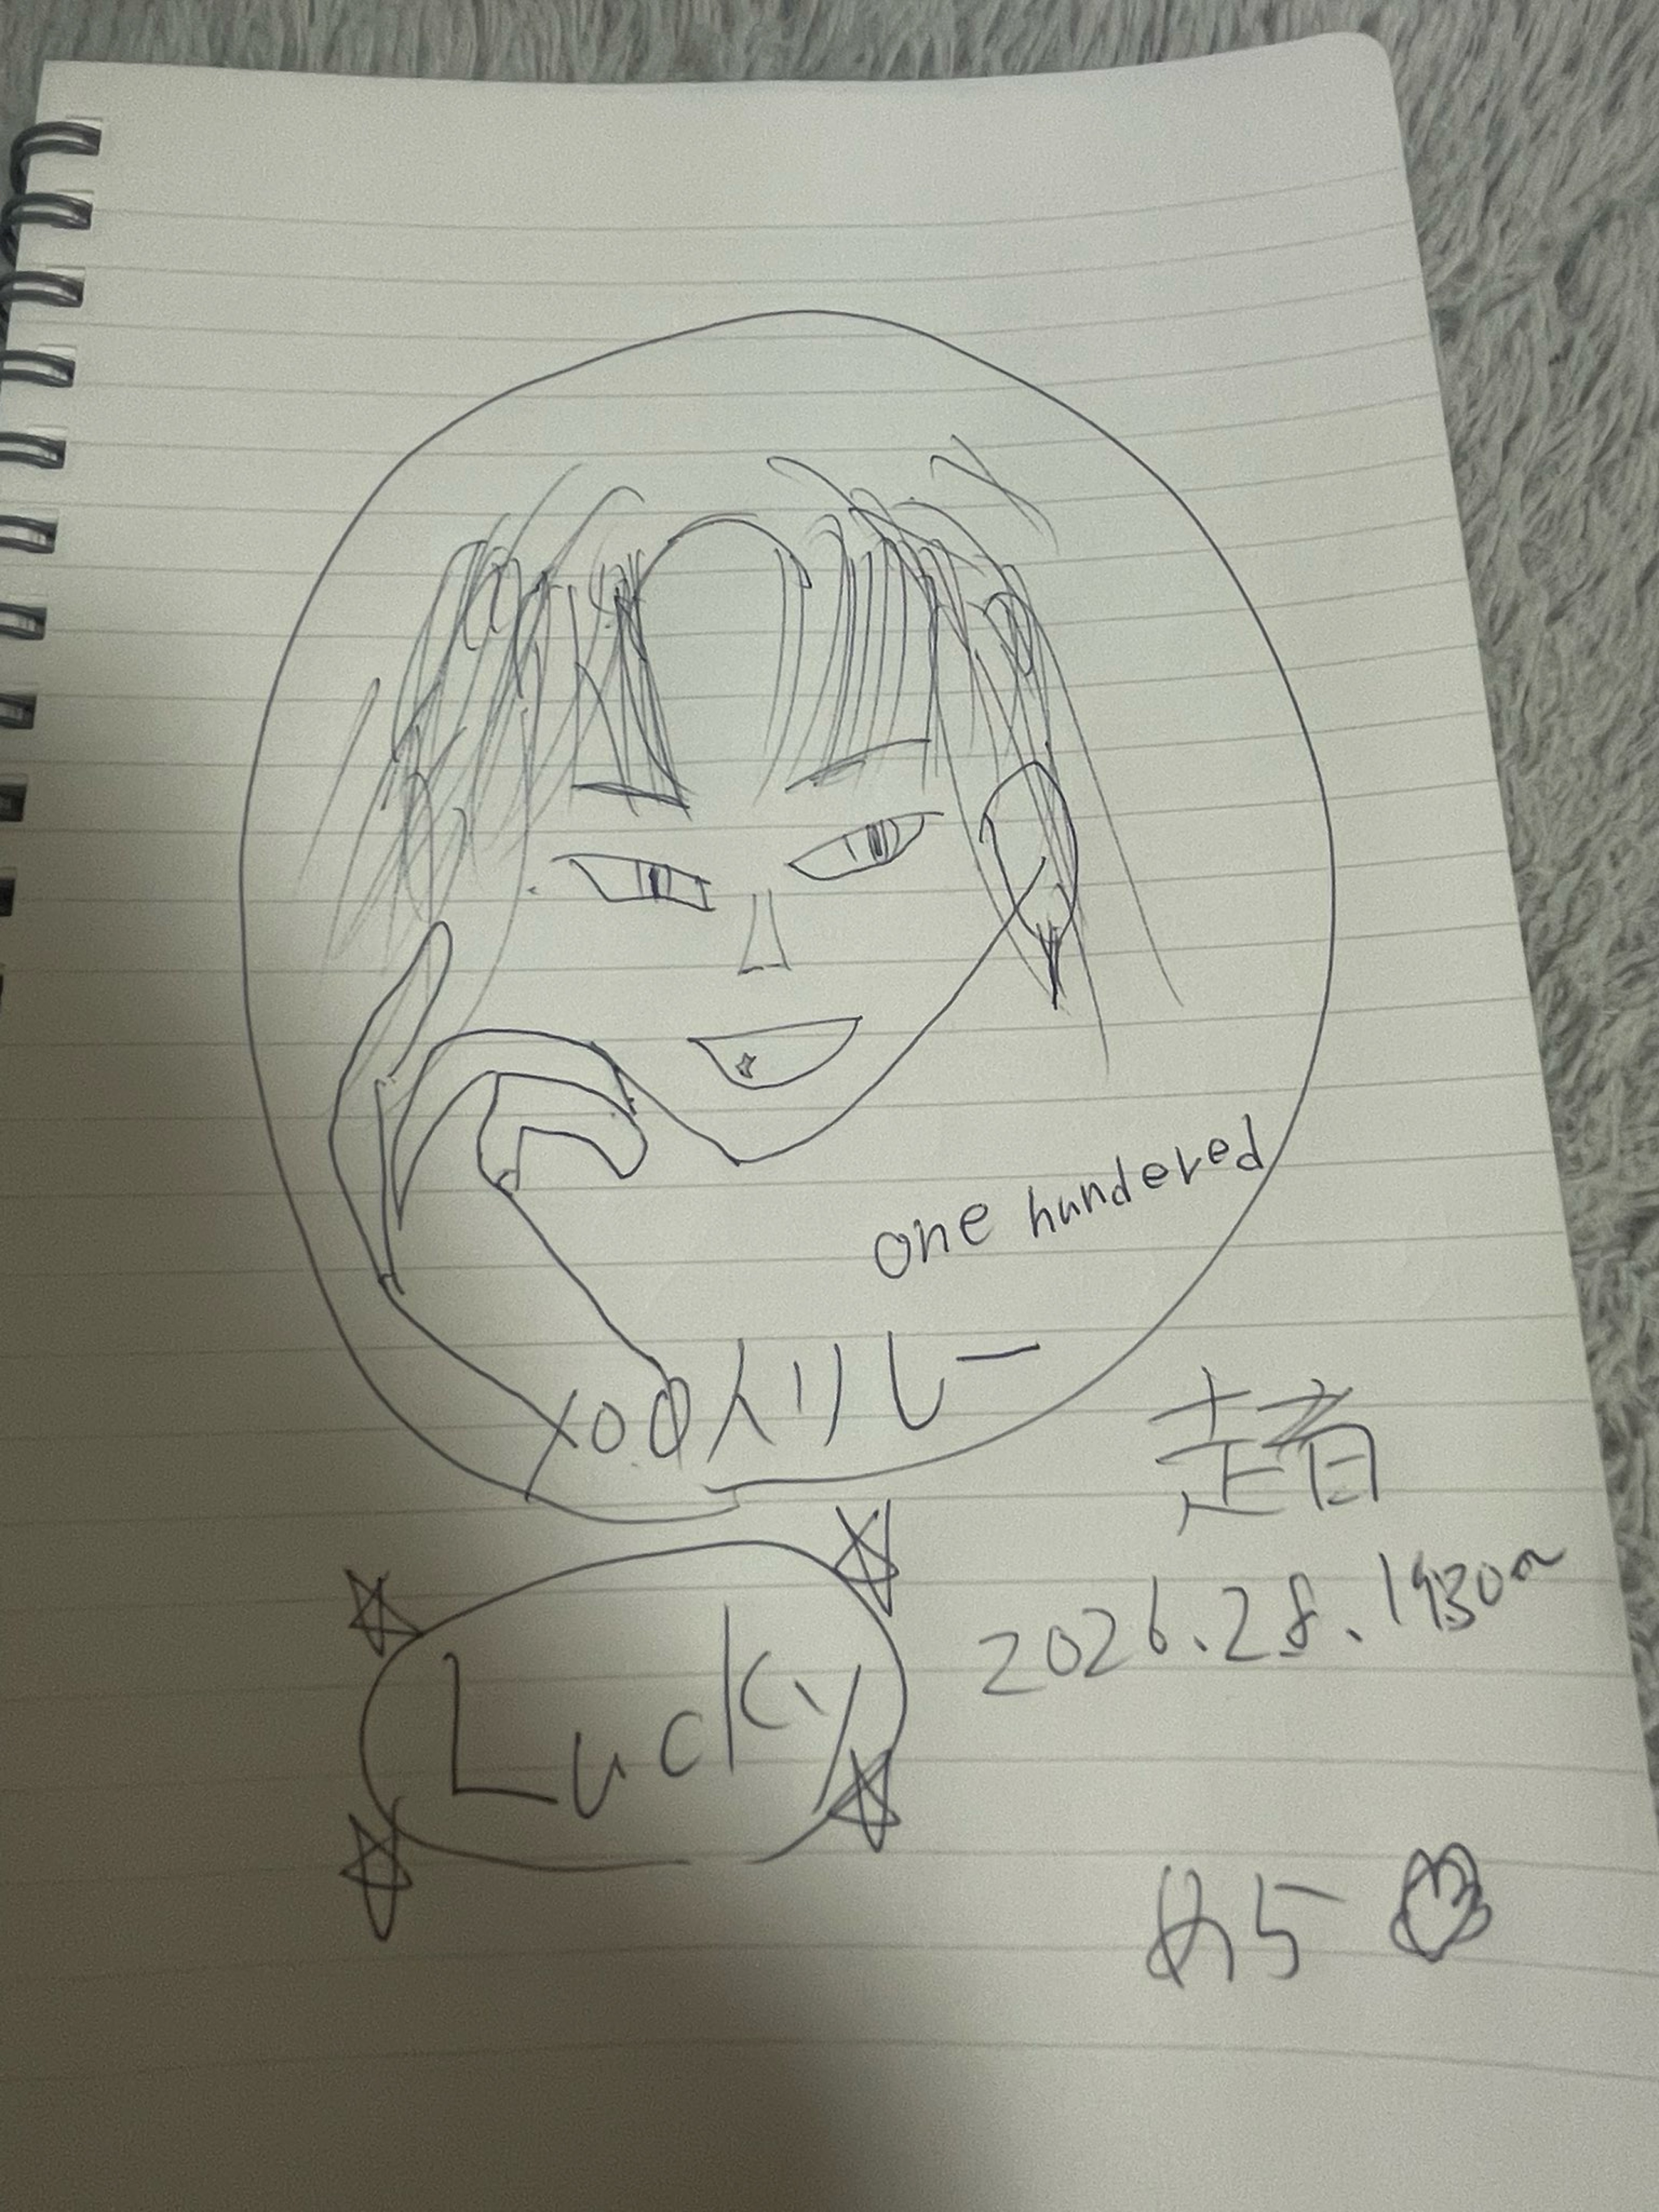 one hundered
100人リレー
2026.28.1930~
Lucky